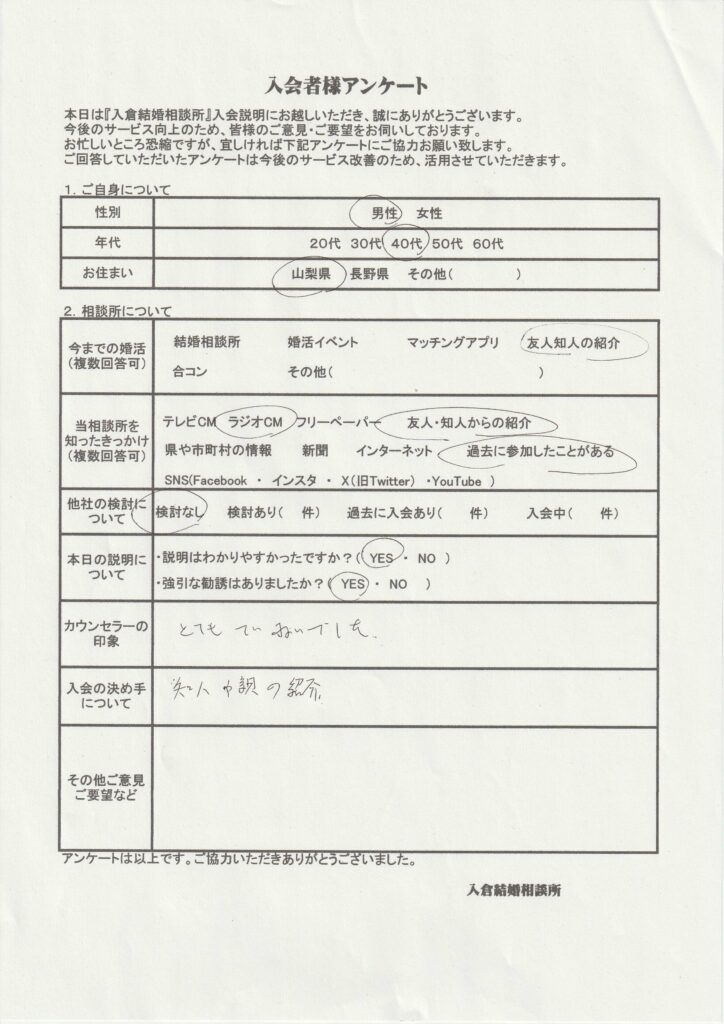 入会者様アンケート
本日は『入倉結婚相談所』入会説明にお越しいただき、誠にありがとうございます。
今後のサービス向上のため、皆様のご意見・ご要望をお伺いしております。
お忙しいところ恐縮ですが、宜しければ下記アンケートにご協力お願い致します。
ご回答していただいたアンケートは今後のサービス改善のため、活用させていただきます。
1．ご自身について
性別 男性 女性
年代 20代 30代 40代 50代 60代
お住まい 山梨県 長野県 その他( )
2．相談所について
今までの婚活
(複数回答可)
結婚相談所 婚活イベント マッチングアプリ 友人知人の紹介
合コン その他( )
当相談所を
知ったきっかけ
(複数回答可)
テレビCM ラジオCM フリーペーパー 友人・知人からの紹介
県や市町村の情報 新聞 インターネット 過去に参加したことがある
SNS(Facebook ・ インスタ ・ X(旧Twitter) ・YouTube )
他社の検討に
ついて
検討なし 検討あり( 件) 過去に入会あり( 件) 入会中( 件)
本日の説明に
ついて
・説明はわかりやすかったですか？( YES ・ NO )
・強引な勧誘はありましたか？( YES ・ NO )
カウンセラーの
印象
とても ていねいでした。
入会の決め手
について
知人 の紹介
その他ご意見
ご要望など
アンケートは以上です。ご協力いただきありがとうございました。
入倉結婚相談所